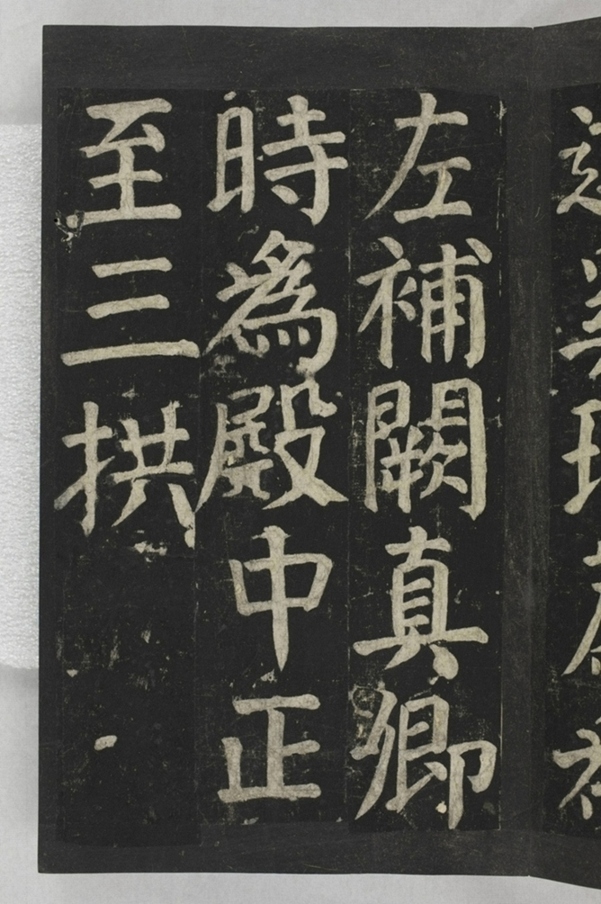 左補闕真卿
時為殿中正
至三拱